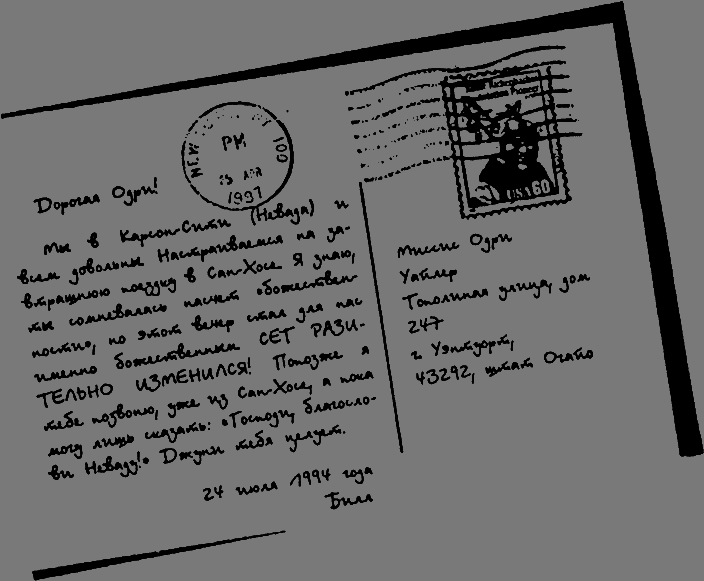 Дорогая Одри!
Мы в Карсон-Сити (Невада) и
всем довольны Настраиваемся на за-
втрашнюю поездку в Сан-Хосе Я знаю,
ты сомневалась насчет «божествен-
ности», но этот вечер стал для нас
именно божественным СЕТ РАЗИ-
ТЕЛЬНО ИЗМЕНИЛСЯ! Попозже я
тебе позвоню, уже из Сан-Хосе, а пока
могу лишь сказать: «Господи, благосло-
ви Неваду!» Джуни тебя целует.
24 июля 1994 года
Билл
PM
1997
USA 60
Миссис Одри
Уайлер
Тополиная улица, дом
247
г. Уэнтуорт,
43292, штат Огайо